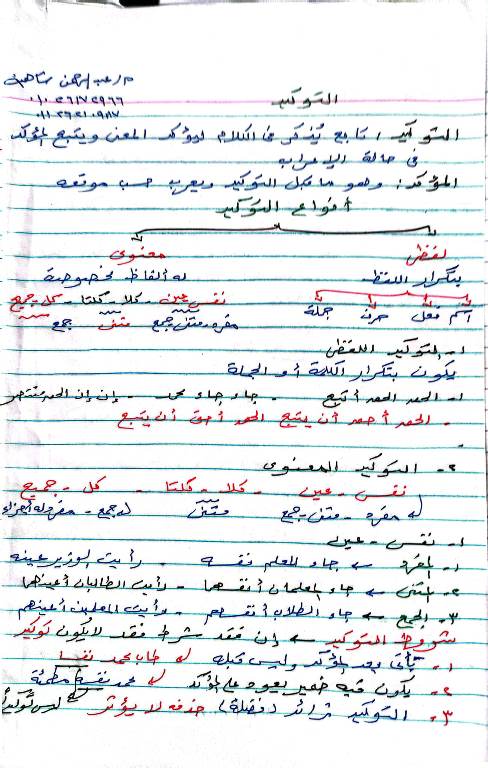 م/عبدالرحمن شاهين
التوكيد
التوكيد: تابع يُذكر فى الكلام ليؤكد المعنى ويتبع المؤكد
فى حالة الإعراب
المؤكد: وهو ما قبل التوكيد ويعرب حسب موقعه
أنواع التوكيد
لفظى معنوى
بتكرار اللفظ له ألفاظ مخصوصة
اسم فعل حرف جملة نفس عين - كلا - كلتا - كل - جميع
مفرد مثنى جمع مثنى جمع
١- التوكيد اللفظى
يكون بتكرار الكلمة أو الجملة
١- الحق الحق أتبع - جاء جاء محمد - إن إن الحق منتصر
- الحق أحق أن يتبع الحق أحق أن يتبع
٢- التوكيد المعنوى
نفس - عين - كلا - كلتا - كل - جميع
له مفرد - مثنى - جمع مثنى له جمع - مفرد له أجزاء
١- نفس - عين
١- المفرد ← جاء المعلم نفسه - رأيت الوزير عينه
٢- المثنى ← جاء المعلمان أنفسهما - رأيت الطالبان أعينهما
٣- الجمع ← جاء الطلاب أنفسهم - رأيت المعلمين أعينهم
شروط التوكيد ← إن فقد شرط فقد لا يكون توكيد
١- يأتى بعد المؤكد وليس قبله طاب محمد نفسا
٢- يكون فيه ضمير يعود على المؤكد محمد نفسه مطمئنة
٣- التوكيد زائد (فضلة) حذفه لا يؤثر ليس توكيدا